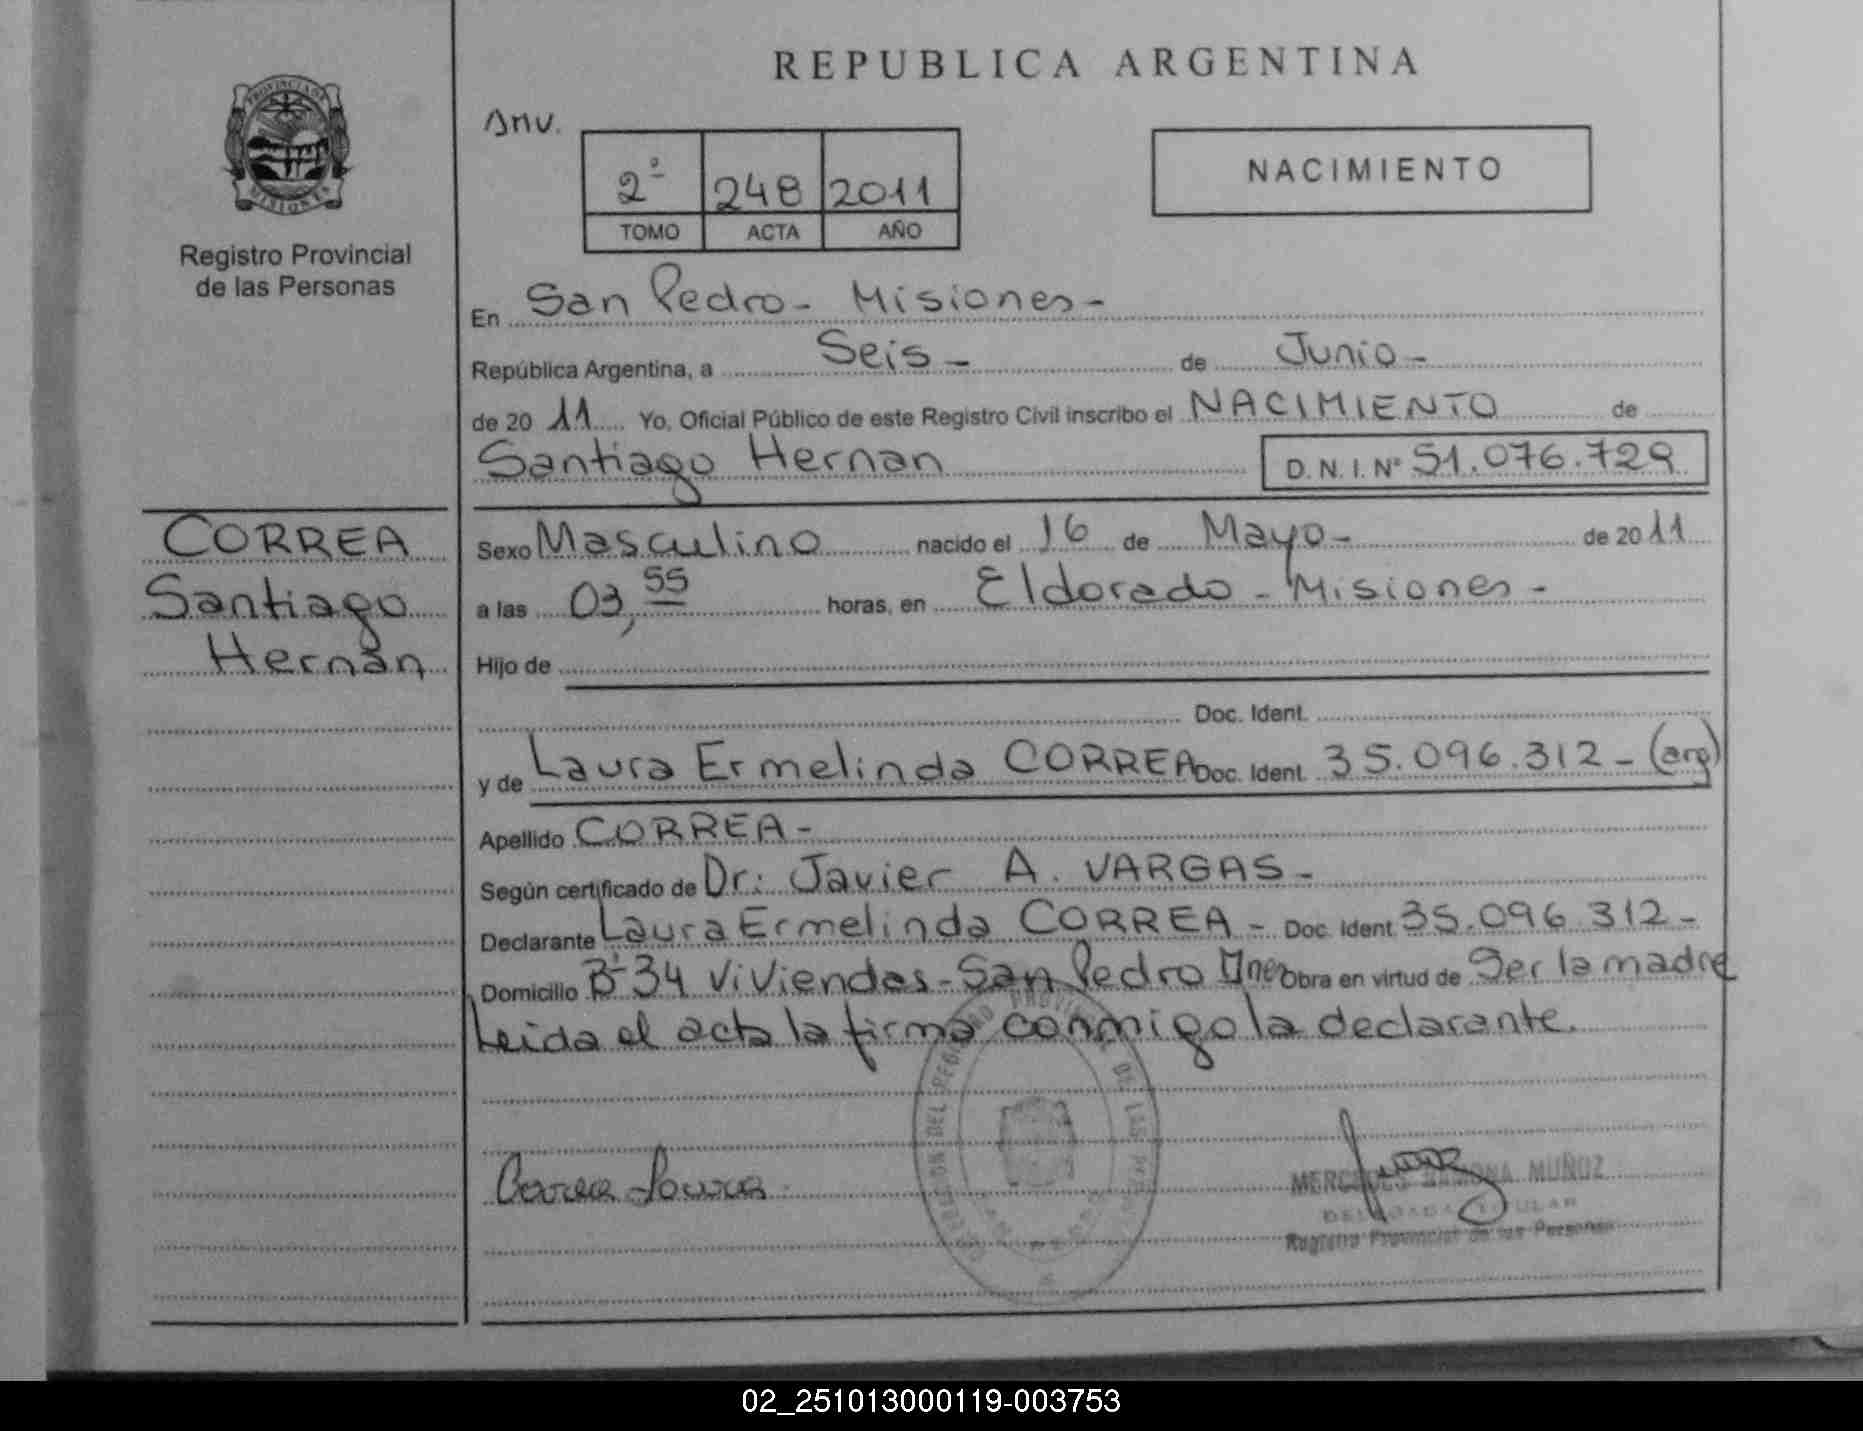 REPUBLICA ARGENTINA
PROVINCIA DE MISIONES
Registro Provincial
de las Personas
2º 248 2011
TOMO ACTA AÑO
NACIMIENTO
En San Pedro - Misiones -
República Argentina, a Seis - de Junio -
de 20 11 Yo, Oficial Público de este Registro Civil inscribo el NACIMIENTO de
Santiago Hernan D.N.I. Nº 51.076.729
CORREA
Santiago
Hernán
Sexo Masculino nacido el 16 de Mayo - de 20 11
a las 03,55 horas, en Eldorado - Misiones -
Hijo de
Doc. Ident.
y de Laura Ermelinda CORREA Doc. Ident. 35.096.312 - (arg)
Apellido CORREA -
Según certificado de Dr: Javier A. VARGAS -
Declarante Laura Ermelinda CORREA - Doc. Ident. 35.096.312 -
Domicilio Bº 34 Viviendas - San Pedro Mnes Obra en virtud de Ser la madre
Leida el acta la firma conmigo la declarante.
Correa Laura
MERCEDES RAMONA MUÑOZ
DELEGADA TITULAR
Registro Provincial de las Personas
02_251013000119-003753